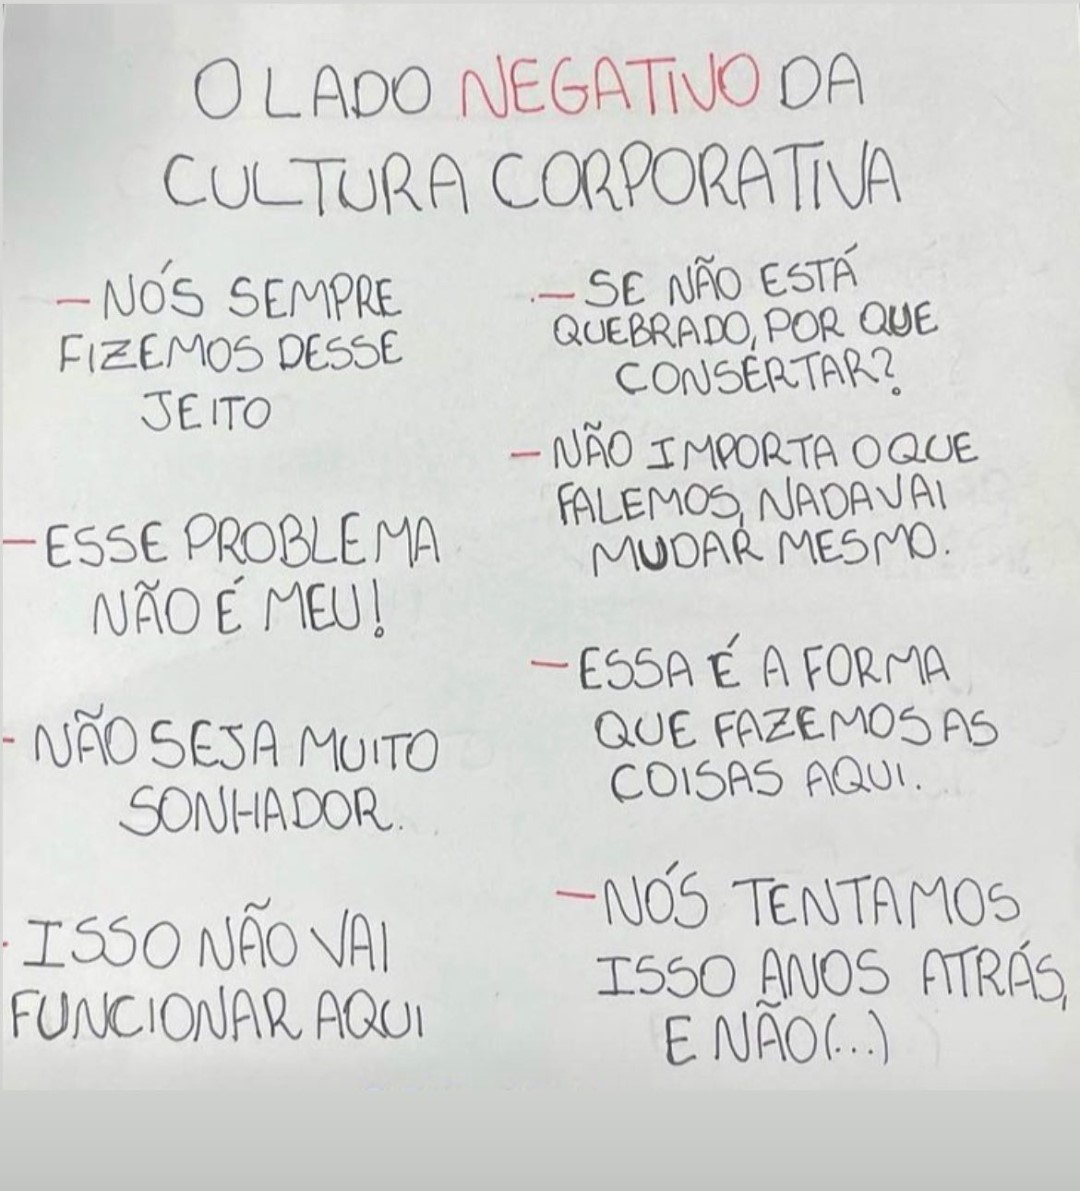 O LADO NEGATIVO DA
CULTURA CORPORATIVA
- NÓS SEMPRE
FIZEMOS DESSE
JEITO
- ESSE PROBLEMA
NÃO É MEU!
- NÃO SEJA MUITO
SONHADOR.
- ISSO NÃO VAI
FUNCIONAR AQUI
- SE NÃO ESTÁ
QUEBRADO, POR QUE
CONSERTAR?
- NÃO IMPORTA O QUE
FALEMOS, NADA VAI
MUDAR MESMO.
- ESSA É A FORMA
QUE FAZEMOS AS
COISAS AQUI.
- NÓS TENTAMOS
ISSO ANOS ATRÁS,
E NÃO (...)